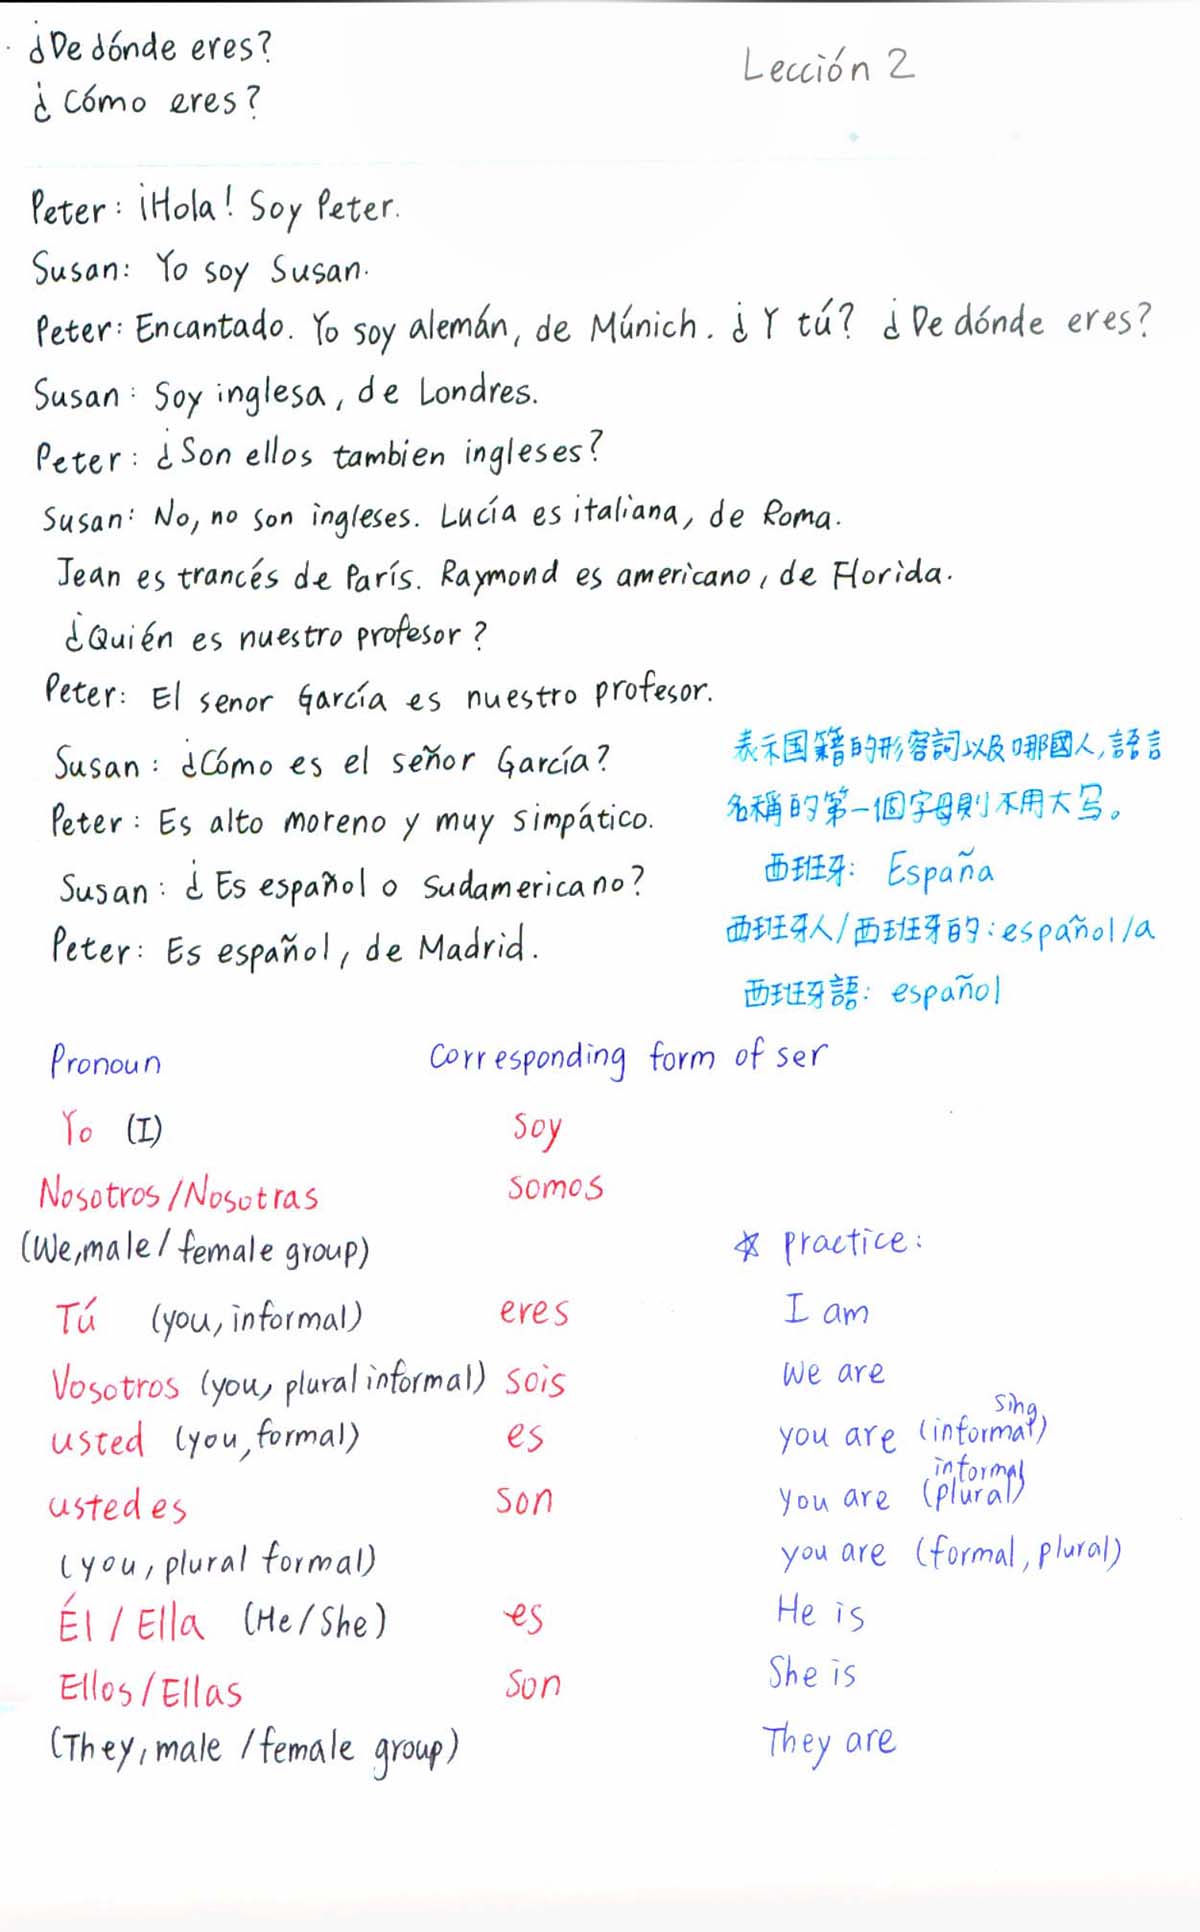 ¿De dónde eres?
Lección 2
¿Cómo eres?
Peter: ¡Hola! Soy Peter.
Susan: Yo soy Susan.
Peter: Encantado. Yo soy alemán, de Múnich. ¿Y tú? ¿De dónde eres?
Susan: Soy inglesa, de Londres.
Peter: ¿Son ellos tambien ingleses?
Susan: No, no son ingleses. Lucía es italiana, de Roma.
Jean es trancés de París. Raymond es americano, de Florida.
¿Quién es nuestro profesor?
Peter: El senor García es nuestro profesor.
Susan: ¿Cómo es el señor García?
Peter: Es alto moreno y muy simpático.
Susan: ¿Es español o sudamericano?
Peter: Es español, de Madrid.
表示国籍的形容詞以及哪國人,語言
名稱的第一個字母則不用大写。
西班牙: España
西班牙人/西班牙的: español/a
西班牙語: español
Pronoun Corresponding form of ser
Yo (I) soy
Nosotros/Nosotras somos
(We, male/female group)
Tú (you, informal) eres
Vosotros (you, plural informal) sois
usted (you, formal) es
ustedes son
(you, plural formal)
Él/Ella (He/She) es
Ellos/Ellas son
(They, male/female group)
☆ practice:
I am
We are
you are (informal) sing
you are (plural) informal
you are (formal, plural)
He is
She is
They are